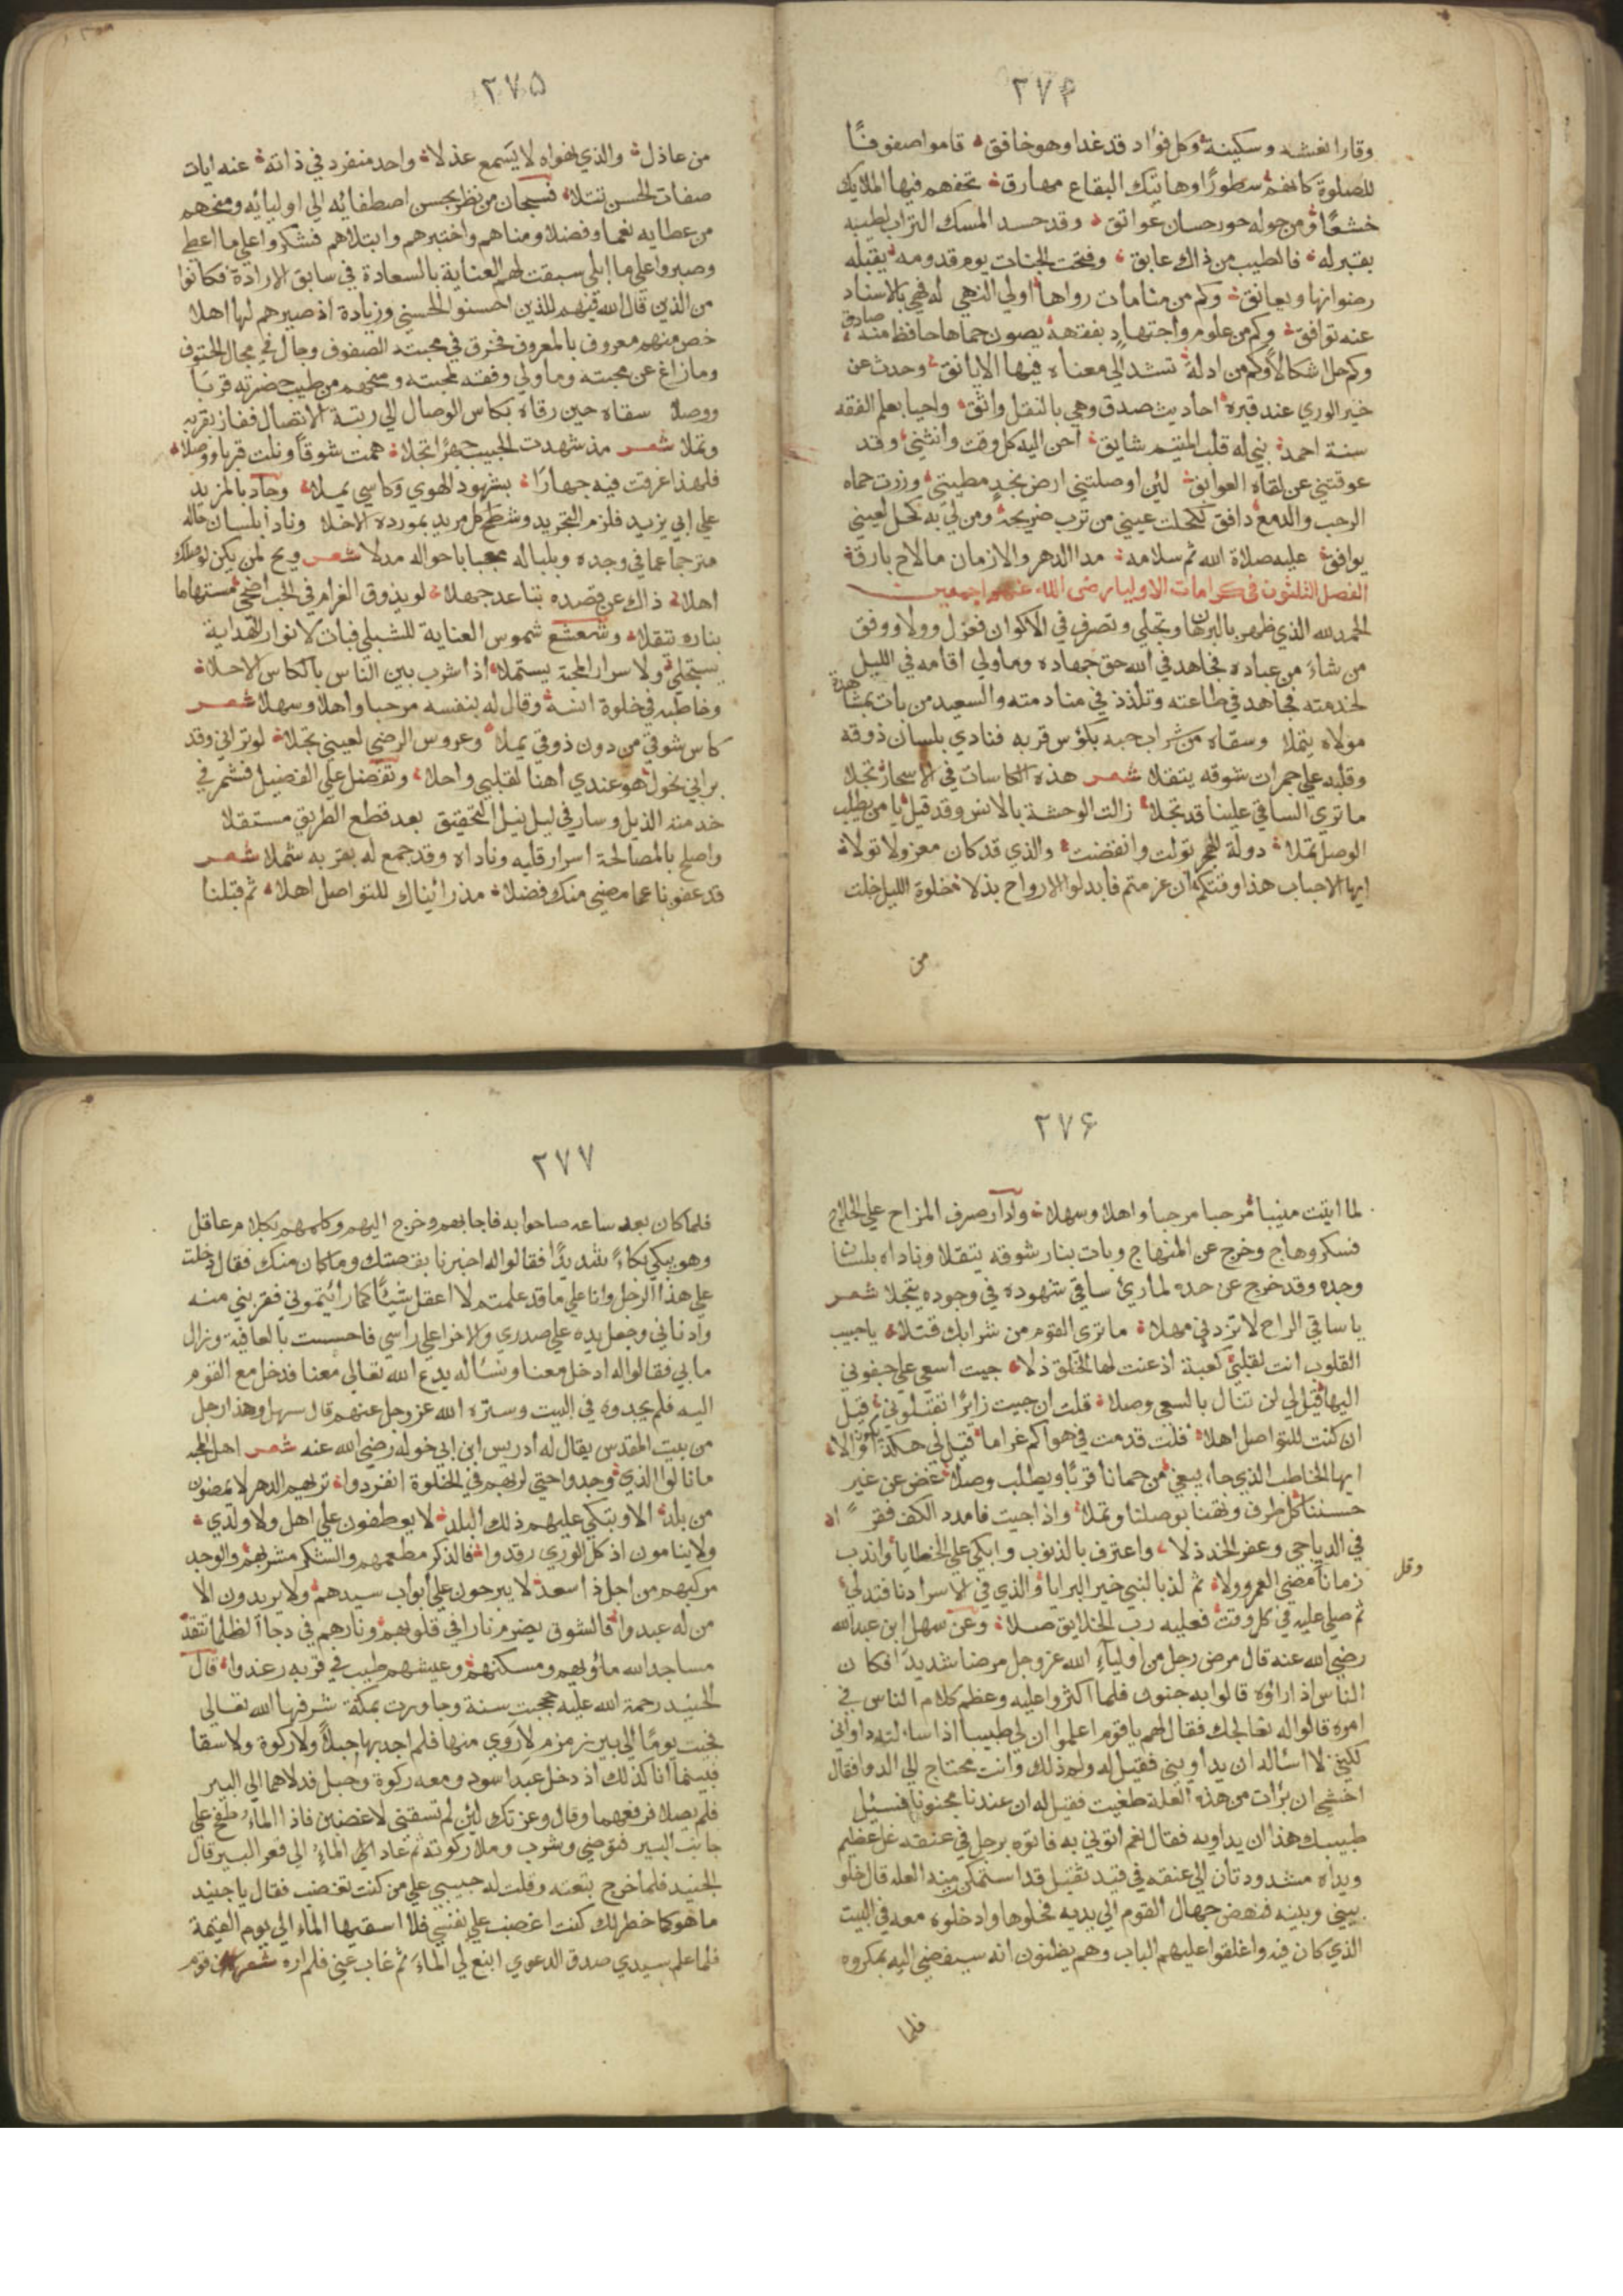 ٢٧۴
وقارا نغشه وسكينة وكل فؤاد قد غدا وهو خافق قاموا صفوفًا
للصلوة كانهم سطورًا وهاتيك البقاع مهارق تحفهم فيها الملايك
خشعًا ومن حوله حور حسان عواتق وقد حسد المسك التراب لطيبه
بقبر له فالطيب من ذاك عابق وفتحت الجنات يوم قدومه يقبله
رضوانها ويعانق وكم من منامات رواها اولي النهي له فهي بالاسناد
عنه توافق وكم من علوم واجتهاد بفقهه يصون حماها حافظ منه صادق
وكم حل اشكالا وكم من ادلة تشد الي معناه فيها الايانق وحدث عن
خير الوري عند قبره احاديث صدق وهي بالنقل واثق واحيا بعلم الفقه
سنة احمد بني له قلب المتيم شايق احن اليه كل وقت وانثني وقد
عوقتني عن لقاه العوايق لئن اوصلتني ارض نجد مطيتي وزرت حماه
الرحب والدمع دافق لكحلت عيني من ترب ضريحه ومن لي به كحل لعيني
يوافق عليه صلاة الله ثم سلامه مدا الدهر والازمان ما لاح بارق
الفصل الثلثون في كرامات الاوليا رضي الله عنهم اجمعين
الحمد لله الذي ظهر بالبرهان وتجلي وتصرف في الاكوان فعزل وولا ووفق
من شاء من عباده فجاهد في الله حق جهاده وما ولي اقامه في الليل
لخدمته فجاهد في طاعته وتلذذ في منادمته والسعيد من بات بمشاهدة
مولاه يتملا وسقاه من شراب حبه بكؤس قربه فنادي بلسان ذوقه
وقلبه علي جمرات شوقه يتقلا شعر هذه الكاسات في الاسحار تجلا
ما تري الساقي علينا قد تجلا زالت الوحشة بالانس وقد قيل يا من يطلب
الوصل تملا دولة الهجر تولت وانقضت والذي قد كان معزولا تولا
ايها الاحباب هذا وقتكم ان عزمتم فابدلوا الارواح بذلا فخلوة الليل خلت
من
٢٧۵
من عاذل والذي يهواه لا يسمع عذلا واحد منفرد في ذاته عنه ايات
صفات الحسن تتلا فسبحان من نظر بحسن اصطفائه الي اوليائه ومنحهم
من عطايه نعما وفضلا ومناهم واختبرهم وابتلاهم فشكروا علي ما اعطي
وصبروا علي ما ابلي سبقت لهم العناية بالسعادة في سابق الارادة فكانوا
من الذين قال الله فيهم للذين احسنوا الحسني وزيادة اذ صيرهم لها اهلا
خص منهم معروف بالمعروف فخرق في محبته الصفوف وجال في مجال الحتوف
وما زاغ عن محبته وما ولي وفقه لمحبته ومنحهم من طيب حضرته قربا
ووصلا سقاه حين رقاه بكاس الوصال الي رتبة الاتصال ففاز بقربه
وتملا شعر مذ شهدت الحبيب جهرًا تجلا همت شوقًا ونلت قربا ووصلا
فلهذا غرقت فيه جهارًا بشهود الهوي وكاسي يملا وجاد بالمزيد
علي ابي يزيد فلزم التجريد وشطح كل مريد بمورده الاحلا ونادا بلسان حاله
مترجما عما في وجده وبلباله معجبا باحواله مدلا شعر ويح لمن يكن لوصلك
اهلا ذاك عن قصده تباعد جهلا لو يذوق الغرام في الحب اضحي مستهاما
بناره يتقلا وشعشع شموس العناية للشبلي فبان لانوار الهداية
يستجلي ولا سرار المحبة يستملا اذا شرب بين الناس بالكاس الاحلا
وخاطبه في خلوة انسه وقال له بنفسه مرحبا واهلا وسهلا شعر
كاس شوقي من دون ذوقي يملا وعروس الرضي لعيني تجلا لو تراني وقد
براني نحول هو عندي اهنا لقلبي واحلا وتفضل علي الفضيل فشمر في
خدمته الذيل وسار في ليل نيل التحقيق بعد قطع الطريق مستقلا
واصلح بالمصالحة اسرار قلبه وناداه وقد جمع له بقربه شملا شعر
قد عفونا عما مضي منك فضلا مذ رائيناك للتواصل اهلا ثم قبلنا
٢٧۶
لما اتيت منيبا مرحبا مرحبا واهلا وسهلا وادار صرف المزاح علي الحلاج
فسكر وهاج وخرج عن المنهاج وبات بنار شوقه يتقلا وناداه بلسان
وجده وقد خرج عن حده لما رئ ساقي شهوده في وجوده يتجلا شعر
يا ساقي الراح لا تزدني مهلا ما تري القوم من شرابك قتلا يا حبيب
القلوب انت لقلبي كعبة اذعنت لها الخلق ذلا جيت اسعي علي جفوني
اليها قيل لي لن تنال بالسعي وصلا قلت ان جيت زايرًا تقتلوني قيل
ان كنت للتواصل اهلا قلت قد مت في هواكم غراما قيل لي هكذا تكون والا
ايها الخاطب الذي جاء يبغي من حمانا قربًا ويطلب وصلا غض عن غير
حسننا كل طرف وبقنا بوصلنا وتملا واذا جيت فامدد الكف فقرًا
في الدياجي وعفر الخد ذلا واعترف بالذنوب وابكي علي الخطايا واندب
وقل
زمانا مضي العمر وولا ثم لذ بالنبي خير البرايا والذي في الاسرا دنا فتدلي
ثم صلي عليه في كل وقت فعليه رب الخلايق صلا وعن سهل ابن عبد الله
رضي الله عنه قال مرض رجل من اوليآء الله عز وجل مرضا شديدًا فكان
الناس اذا راؤه قالوا به جنون فلما اكثروا عليه وعظم كلام الناس في
امره قالوا له نعالجك فقال لهم يا قوم اعلموا ان لي طبيبا اذا سالته داواني
لكيني لا اسئاله ان يداويني فقيل له ولم ذلك وانت محتاج الي الدوا فقال
اخشي ان برأت من هذه العلة طغيت فقيل له ان عندنا مجنونا فنسئل
طبيبك هذا ان يداويه فقال نعم اتوني به فاتوه برجل في عنقه غل عظيم
ويداه مشدودتان الي عنقه في قيد ثقيل قد استمكن منه العله قال خلو
بيني وبينه فنهض جهال القوم الي يديه فخلوها وادخلوه معه في البيت
الذي كان فيه واغلقوا عليهم الباب وهم يظنون انه سيفضي اليه بمكروه
فلما
٢٧٧
فلما كان بعد ساعه صاحوا به فاجابهم وخرج اليهم وكلمهم بكلام عاقل
وهو يبكي بكاءً شديدًا فقالوا له اخبرنا بقصتك وما كان منك فقال دخلت
علي هذا الرجل وانا علي ما قد علمتم لا اعقل شيئًا كما رائيتموني فقربني منه
وادناني وجعل يده علي صدري والاخر اعلي راسي فاحسست بالعافية وزال
ما بي فقالوا له ادخل معنا ونسئاله يدع الله تعالي معنا فدخل مع القوم
اليه فلم يجدوه في البيت وستره الله عز وجل عنهم قال سهل وهذا رجل
من بيت المقدس يقال له ادريس ابن ابي خوله رضي الله عنه شعر اهل المحبه
ما نالوا الذي وجدوا حتي لربهم في الخلوة انفردوا تريهم الدهر لا يمضون
من بلد الا ويبكي عليهم ذلك البلد لا يعطفون علي اهل ولا ولدي
ولا ينامون اذ كل الوري رقدوا فالذكر مطعمهم والشكر مشربهم والوجد
مركبهم من اجل ذا سعدو لا يبرحون علي ابواب سيدهم ولا يريدون الا
من له عبدوا فالشوق يضرم نارا في قلوبهم ونارهم في دجا الظلما تتقد
مساجد الله ماؤيهم ومسكنهم وعيشهم طيب في قربه رغدوا قال
الجنيد رحمة الله عليه حججت سنة وجاورت بمكة شرفها الله تعالي
فجيت يومًا الي بير زمزم لاروي منها فلم اجد بها حبلًا ولا ركوة ولا سقا
فبينما انا كذلك اذ دخل عبد اسود ومعه ركوة وحبل فدلاهما الي البير
فلم يصلا فرفعهما وقال وعزتك لئن لم تسقني لاغضبن فاذا الماء طفح علي
جانب البير فتوضي وشرب وملا ركوته ثم عاد الماء الي قعر البير قال
الجنيد فلما خرج تبعته وقلت له حبيبي علي من كنت تغضب فقال يا جنيد
ما هو كما خطر لك كنت اغضب علي نفسي فلا اسقيها الماء الي يوم القيمة
فلما علم سيدي صدق الدعوي انبع لي الماء ثم غاب عني فلم اره شعر قوم